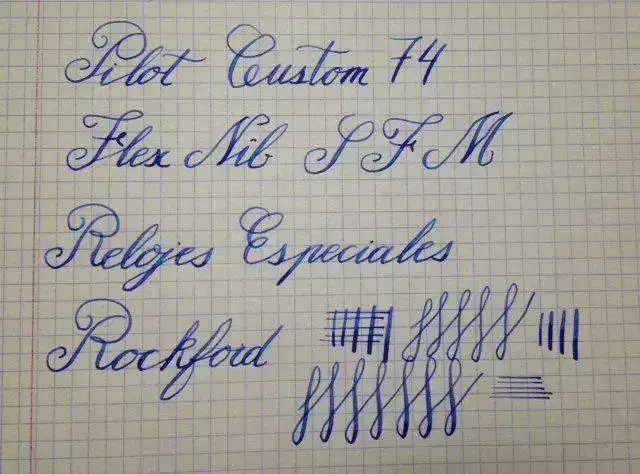 Pilot Custom 74
Flex Nib S F M
Relojes Especiales
Rockford